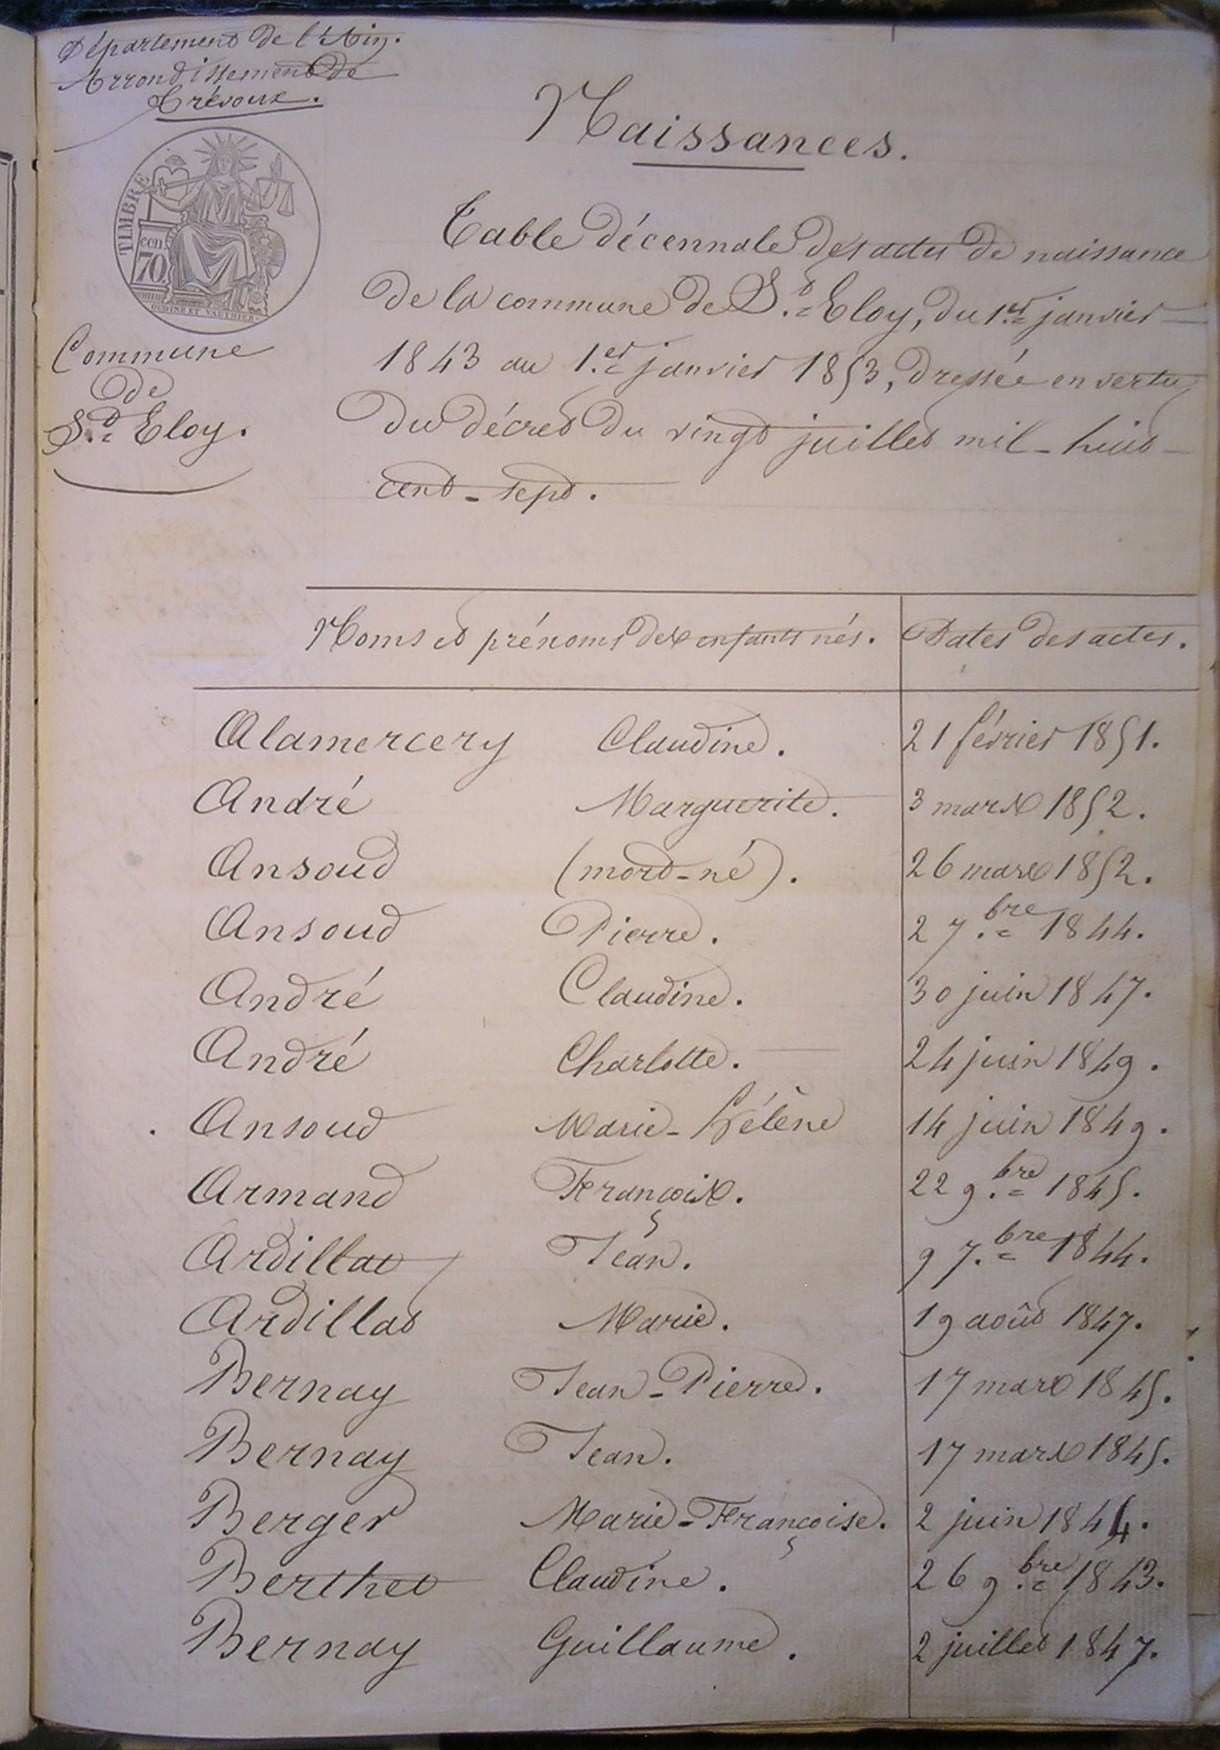 Département de l'Ain.
Arrondissement de
Trévoux.
Naissances.
TIMBRE
cen
70
OUDINÉ ET VAUTHIER
Table décennale des actes de naissance
de la commune de St. Eloy, du 1er janvier
1843 au 1.er janvier 1853, dressée en vertu
Du décret du vingt juillet mil-huit
cent-sept.
Commune
de
St. Eloy.
Noms et prénoms des enfants nés. Dates des actes.
Alamercery Claudine. 21 février 1851.
André Marguerite. 3 mars 1852.
Ansoud (mort-né). 26 mars 1852.
Ansoud Pierre. 2 7.bre 1844.
André Claudine. 30 juin 1847.
André Charlotte. 24 juin 1849.
Ansoud Marie-Hélène 14 juin 1849.
Armand François. 22 9.bre 1845.
Ardillat Jean. 9 7.bre 1844.
Ardillat Marie. 19 août 1847.
Bernay Jean-Pierre. 17 mars 1845.
Bernay Jean. 17 mars 1845.
Berger Marie-Françoise. 2 juin 1844.
Berthet Claudine. 26 9.bre 1843.
Bernay Guillaume. 2 juillet 1847.